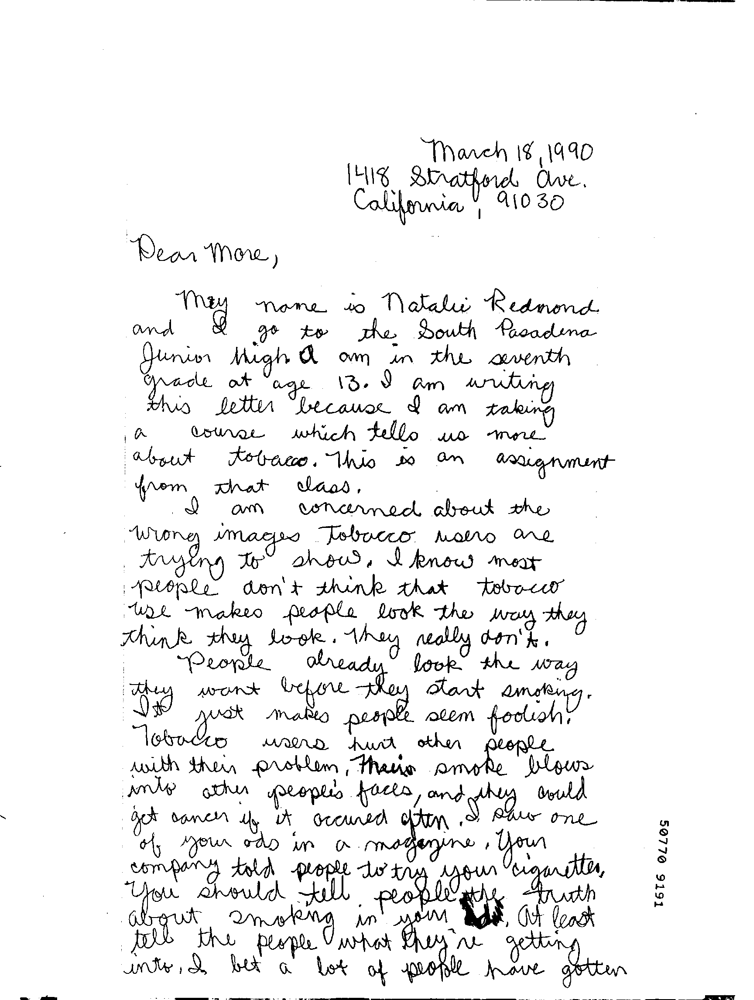 March 18, 1990
1418 Stratford Ave.
California, 91030
Dear More,
May name is Natalie Redmond
and I go to the South Pasadena
Junior High. I am in the seventh
grade at age 13. I am writing
this letter because I am taking
a course which tells us more
about tobacco. This is an assignment
from that class.
I am concerned about the
wrong images Tobacco users are
trying to show. I know most
people don't think that tobacco
use makes people look the way they
think they look. They really don't.
People already look the way
they want before they start smoking.
It just makes people seem foolish.
Tobacco users hurt other people
with their problem. Their smoke blows
into other people's faces, and they could
get cancer if it occured often. I saw one
of your ads in a magazine. Your
company told people to try your cigarettes.
You should tell people the truth
about smoking in your ads. At least
tell the people what they're getting
into. I bet a lot of people have gotten
50770 9191